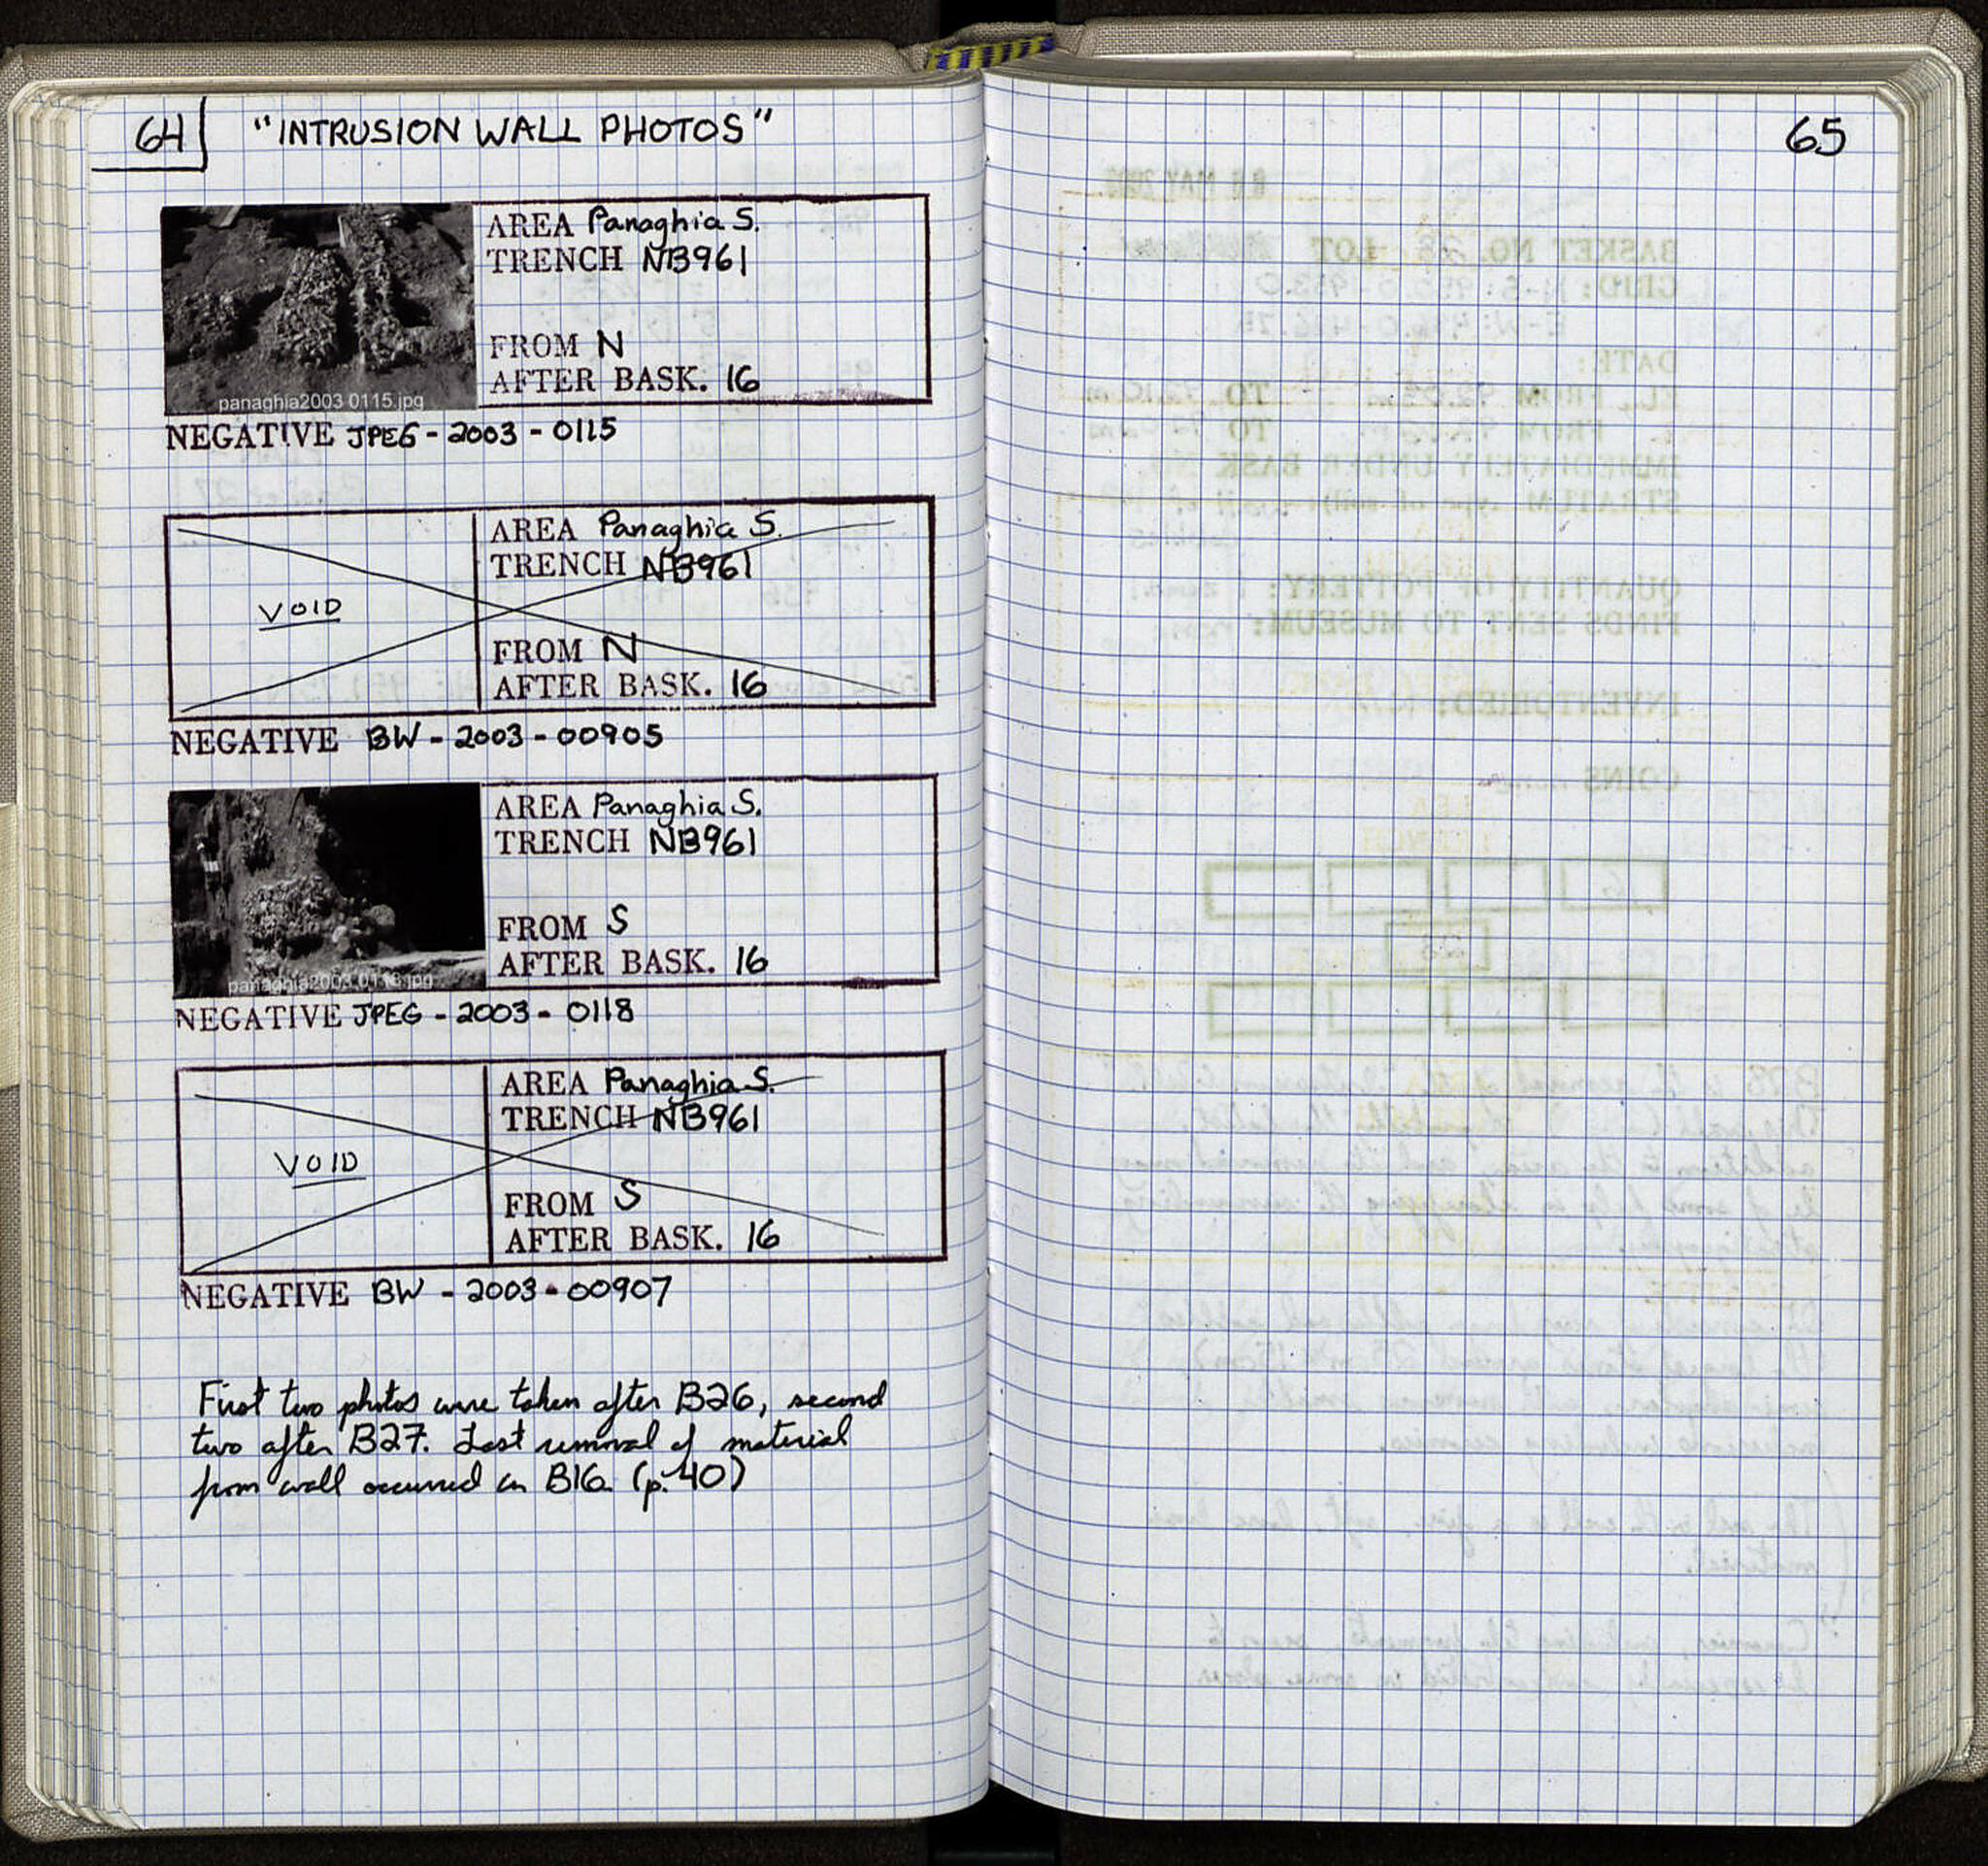 64 "INTRUSION WALL PHOTOS"
AREA Panaghia S.
TRENCH NB961
FROM N
AFTER BASK. 16
panaghia2003 0115.jpg
NEGATIVE JPEG - 2003 - 0115
AREA Panaghia S.
TRENCH NB961
VOID
FROM N
AFTER BASK. 16
NEGATIVE BW - 2003 - 00905
AREA Panaghia S.
TRENCH NB961
FROM S
AFTER BASK. 16
panaghia2003 0118.jpg
NEGATIVE JPEG - 2003 - 0118
AREA Panaghia S.
TRENCH NB961
VOID
FROM S
AFTER BASK. 16
NEGATIVE BW - 2003 - 00907
First two photos were taken after B26, second
two after B27. Last removal of material
from wall occurred in B16 (p. 40)
65